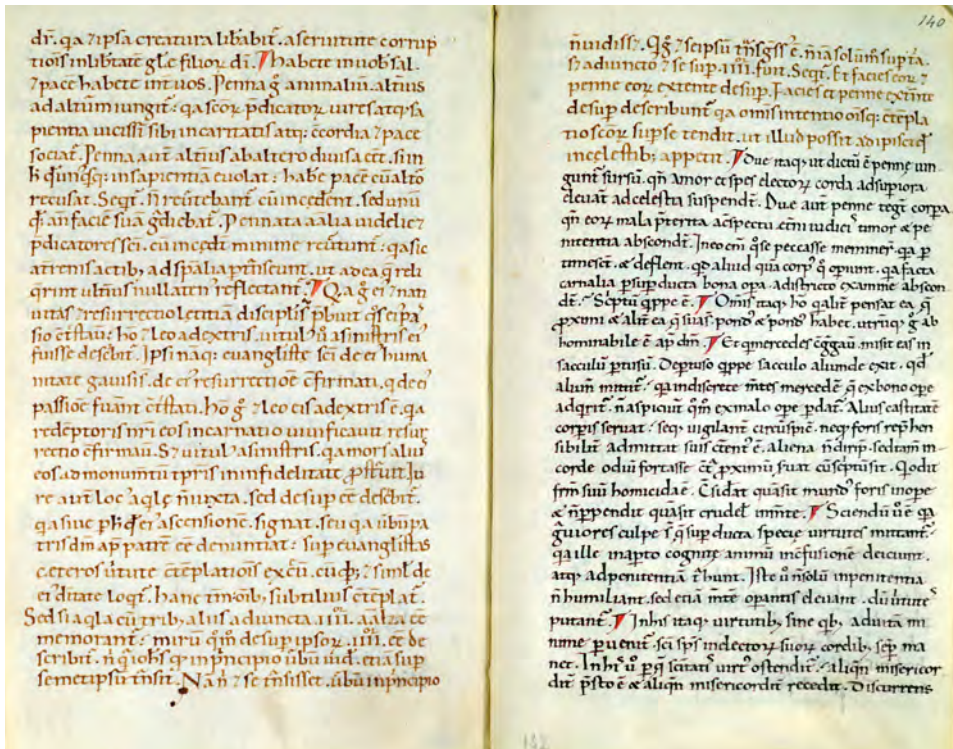 dr̄. qa ⁊ ipsa creatura libabit̄. a seruitute corrup
tiois in lib̄tatē gl̄e filioꝝ dī. habete in uob̄ sal.
⁊ pacē habete int̄ uos. Penna ḡ animaliū. alt̄ius
ad alt̄um iungit̄: qa sc̄oꝝ p̄dicatoꝝ uires atqꝫ sa
pientia uicissī sibi in caritatis atqꝫ c̄cordia ⁊ pace
sociat̄. Penna aut̄ alt̄ius ab altero diuisa cēt. si in
in sapientiā euolat: habe pacē cū alt̄o
recusat. Seqt̄. n̄ reūtebant̄ cū incedent. sed unū
an faciē suā g̃diebat̄. Pennata aalia uidelic⁊
p̄dicatores sc̄i. cū incedt̄ minime reūtunt̄: qa sic
a t̄renis actibꝫ ad spalia p̄t̄nseunt. ut ad ea q̄ reli
q̄rint ult̄ius nullaten̄ reflectant̄. Qa ḡ ei ⁊ nati
uitas ⁊ resurrectio letitiā disciplis p̄buit
sio c̄t̄stau: hō ⁊ leo a dextris. uitulꝰ ū a sinistris ei
fuisse desc̄bit̄. Ipsi naqꝫ euangliste sc̄i de eiꝰ huma
nitate gauisi. de eiꝰ resurrectiōe c̄firmati. q̄ de eiꝰ
passiōe fuānt c̄t̄stati. hō ḡ ⁊ leo eis a dextris ē. qa
redēptoris nr̄i eos incarnatio uiuificauit resur
rectio c̄firmau. S⁊ uitulꝰ a sinistris. qa mors aliꝰ
eos ad monumtū tp̄ris in infidelitate p̄stuit. Iu
re aut̄ locꝰ aqle n̄ iuxta. sed desup cē desc̄bit̄.
qa siue p hꝫ qd̄ eiꝰ ascensionē signat. seu qa ūbū pa
tris dm̄ ap̄ patrē cē denuntiat: sup euanglistas
ceteros ūtute c̄t̄eplatiois excu. cū ⁊ siml̄ de
ei ditate loqt̄. hanc tm̄ oībꝫ subtiliuꝰ c̄teplat̄.
Sed si aqla cū tribꝫ aliis adiuncta .iiii. aalia cē
memorant̄: mirū qm̄ desup ipsoꝝ .iiii. cē de
scribit̄. n̄ qa iohs in p̄ncipio ūbū uid̄. etiā sup
semetipsū t̄nsit. Nā n̄ ⁊ se t̄nsisset. ūbū in p̄ncipio
140
n̄ uidiss⁊. Qd̄ ḡ ⁊ seipsū t̄nsgss̄ ē. n̄ iā solūm̄ sup ta.
s⁊ adiuncto ⁊ se sup .iiii. fuit. Seqt̄. Et facies eoꝝ ⁊
penne eoꝝ extente desup. Facies et penne extente
desup describunt̄ qa omīs intentio oīsqꝫ c̄t̄epla
tio sc̄oꝝ sup se tendit. ut illud possit adipisci qd̄
in celestibꝫ appetit. Due itaqꝫ ut dictū ē penne iun
gunt̄ sursū. qn̄ amor et spes electoꝝ corda ad supiora
eleuat ad celestia suspendit̄. Due aut̄ penne tegt̄ corpa
qn̄ eoꝝ mala p̄terita a c̄spectu et̄ni iudicꝰ timor & pe
nitentia abscondt̄. In eo cm̄ q̄ se peccasse meminer̄. qa p
timescūt. & deflent. qd̄ aliud qua corpꝰ q̄ opiunt. qa facta
carnalia p sup̄ducta bona opa a districto examine abscon
dt̄. Sc̄ptū qppe ē. Omīs itaqꝫ hō qalit̄ pensat ea q̄
proximi & alit̄ ea q̄ sua s̄. pondꝰ & pondꝰ habet. utrūqꝫ ḡ ab
hominabile ē ap̄ dm̄. Et q mercedes c̄g̃gau. misit eas in
sacculū p̄tusū. De p̄tuso qppe sacculo aliunde exit. qd̄
aliūn mittit̄: qa indiscrete m̄tes mercedē q̄ ex bono ope
adqrit̄. n̄ aspiciunt qm̄ ex malo ope p̄dat̄. Alius castitatē
corpis seruat: seqꝫ uigilant̄ circūspic. neqꝫ foris rep̄hen
sibilit̄ admittat suis c̄tent̄ ē. aliena n̄ dirip. sed tam̄ in
corde odiū fortasse ct̄ pximū seruat cū sc̄ptū sit. Q odit
frm̄ suū homicida ē. C̄sidat̄ qua sit mundꝰ foris in ope
& n̄ p̄pendit̄ qua sit crudel̄ in m̄te. Sciendū ū ē qa
gūiores culpe s̄ q̄ sup ducta specie uirtutes mittant̄:
qa ille in apto cognite animū in c̄fusione deiciunt.
atqꝫ ad penitentia t̄hunt. Iste ū n̄ solū in penitentia
n̄ humiliant. sed etiā m̄tē opantis eleuant. dū ūtuteꝰ
putant̄. In his itaqꝫ uirtutibꝫ sine qbꝫ ad uitā mi
nime puenit̄. sc̄i sp̄s in electoꝝ suoꝝ cordibꝫ sep ma
net. In hiꝰ ū p q̄ sc̄itatꝰ uirtꝰ ostendit̄: aliqn̄ misericor
dit̄ p̄sto ē & aliqn̄ misericordit̄ recedit. Discurrens
132